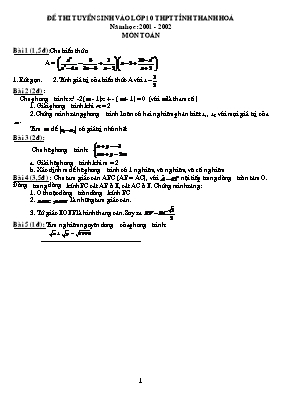 ĐỀ THI TUYỂN SINH VÀO LỚP 10 THPT TỈNH THANH HOÁ
Năm học: 2001 - 2002
MÔN TOÁN
Bài 1 (1,5đ): Cho biểu thức
A =
1. Rút gọn. 2. Tính giá trị của biểu thức A với x =
Bài 2 (2đ):
Cho phương trình: x² - 2(m - 1)x + - (m + 1) = 0 (với m là tham số)
1. Giải phương trình khi m = 2
2. Chứng minh rằng phương trình luôn có hai nghiệm phân biệt x₁, x₂ với mọi giá trị của
m.
Tìm m để |x₁ - x₂| có giá trị nhỏ nhất
Bài 3 (2đ):
Cho hệ phương trình:
a. Giải hệ phương trình khi m = 2
b. Xác định m để hệ phương trình có 1 nghiệm, vô nghiệm, vô số nghiệm
Bài 4 (3,5đ): Cho tam giác cân ABC (AB = AC), với nội tiếp trong đường tròn tâm O.
Đường tròn đường kính BC cắt AB ở E, cắt AC ở F. Chứng minh rằng:
1. O thuộc đường tròn đường kính BC
2. là những tam giác cân.
3. Tứ giác là hình thang cân. Suy ra
Bài 5 (1đ): Tìm nghiệm nguyên dương của phương trình:
1